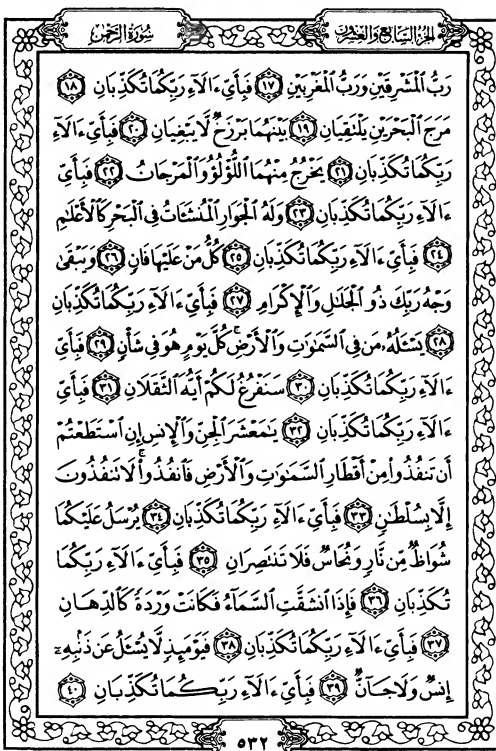 سُورَةُ الرَّحْمٰن
الجُزْءُ السَّابِعُ وَالعِشْرُونَ
رَبُّ ٱلْمَشْرِقَيْنِ وَرَبُّ ٱلْمَغْرِبَيْنِ ١٧ فَبِأَيِّ ءَالَآءِ رَبِّكُمَا تُكَذِّبَانِ ١٨
مَرَجَ ٱلْبَحْرَيْنِ يَلْتَقِيَانِ ١٩ بَيْنَهُمَا بَرْزَخٌ لَّا يَبْغِيَانِ ٢٠ فَبِأَيِّ ءَالَآءِ
رَبِّكُمَا تُكَذِّبَانِ ٢١ يَخْرُجُ مِنْهُمَا ٱللُّؤْلُؤُ وَٱلْمَرْجَانُ ٢٢ فَبِأَيِّ
ءَالَآءِ رَبِّكُمَا تُكَذِّبَانِ ٢٣ وَلَهُ ٱلْجَوَارِ ٱلْمُنشَـَٔاتُ فِى ٱلْبَحْرِ كَٱلْأَعْلَٰمِ
٢٤ فَبِأَيِّ ءَالَآءِ رَبِّكُمَا تُكَذِّبَانِ ٢٥ كُلُّ مَنْ عَلَيْهَا فَانٍ ٢٦ وَيَبْقَىٰ
وَجْهُ رَبِّكَ ذُو ٱلْجَلَٰلِ وَٱلْإِكْرَامِ ٢٧ فَبِأَيِّ ءَالَآءِ رَبِّكُمَا تُكَذِّبَانِ
٢٨ يَسْـَٔلُهُۥ مَن فِى ٱلسَّمَٰوَٰتِ وَٱلْأَرْضِ ۚ كُلَّ يَوْمٍ هُوَ فِى شَأْنٍ ٢٩ فَبِأَيِّ
ءَالَآءِ رَبِّكُمَا تُكَذِّبَانِ ٣٠ سَنَفْرُغُ لَكُمْ أَيُّهَ ٱلثَّقَلَانِ ٣١ فَبِأَيِّ
ءَالَآءِ رَبِّكُمَا تُكَذِّبَانِ ٣٢ يَٰمَعْشَرَ ٱلْجِنِّ وَٱلْإِنسِ إِنِ ٱسْتَطَعْتُمْ
أَن تَنفُذُوا۟ مِنْ أَقْطَارِ ٱلسَّمَٰوَٰتِ وَٱلْأَرْضِ فَٱنفُذُوا۟ ۚ لَا تَنفُذُونَ
إِلَّا بِسُلْطَٰنٍ ٣٣ فَبِأَيِّ ءَالَآءِ رَبِّكُمَا تُكَذِّبَانِ ٣٤ يُرْسَلُ عَلَيْكُمَا
شُوَاظٌ مِّن نَّارٍ وَنُحَاسٌ فَلَا تَنتَصِرَانِ ٣٥ فَبِأَيِّ ءَالَآءِ رَبِّكُمَا
تُكَذِّبَانِ ٣٦ فَإِذَا ٱنشَقَّتِ ٱلسَّمَآءُ فَكَانَتْ وَرْدَةً كَٱلدِّهَانِ
٣٧ فَبِأَيِّ ءَالَآءِ رَبِّكُمَا تُكَذِّبَانِ ٣٨ فَيَوْمَئِذٍ لَّا يُسْـَٔلُ عَن ذَنۢبِهِۦٓ
إِنسٌ وَلَا جَآنٌّ ٣٩ فَبِأَيِّ ءَالَآءِ رَبِّكُمَا تُكَذِّبَانِ ٤٠
٥٣٢